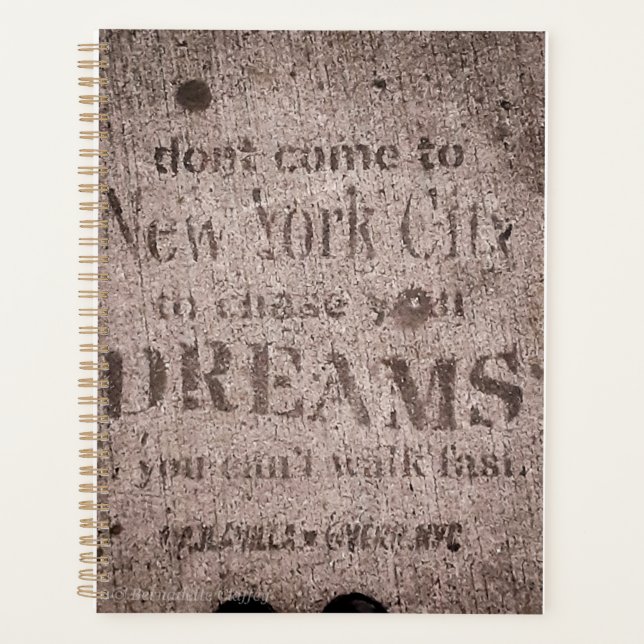 dont come to
New York City
to chase your
DREAMS
if you can't walk fast.
© Bernadette Claffey